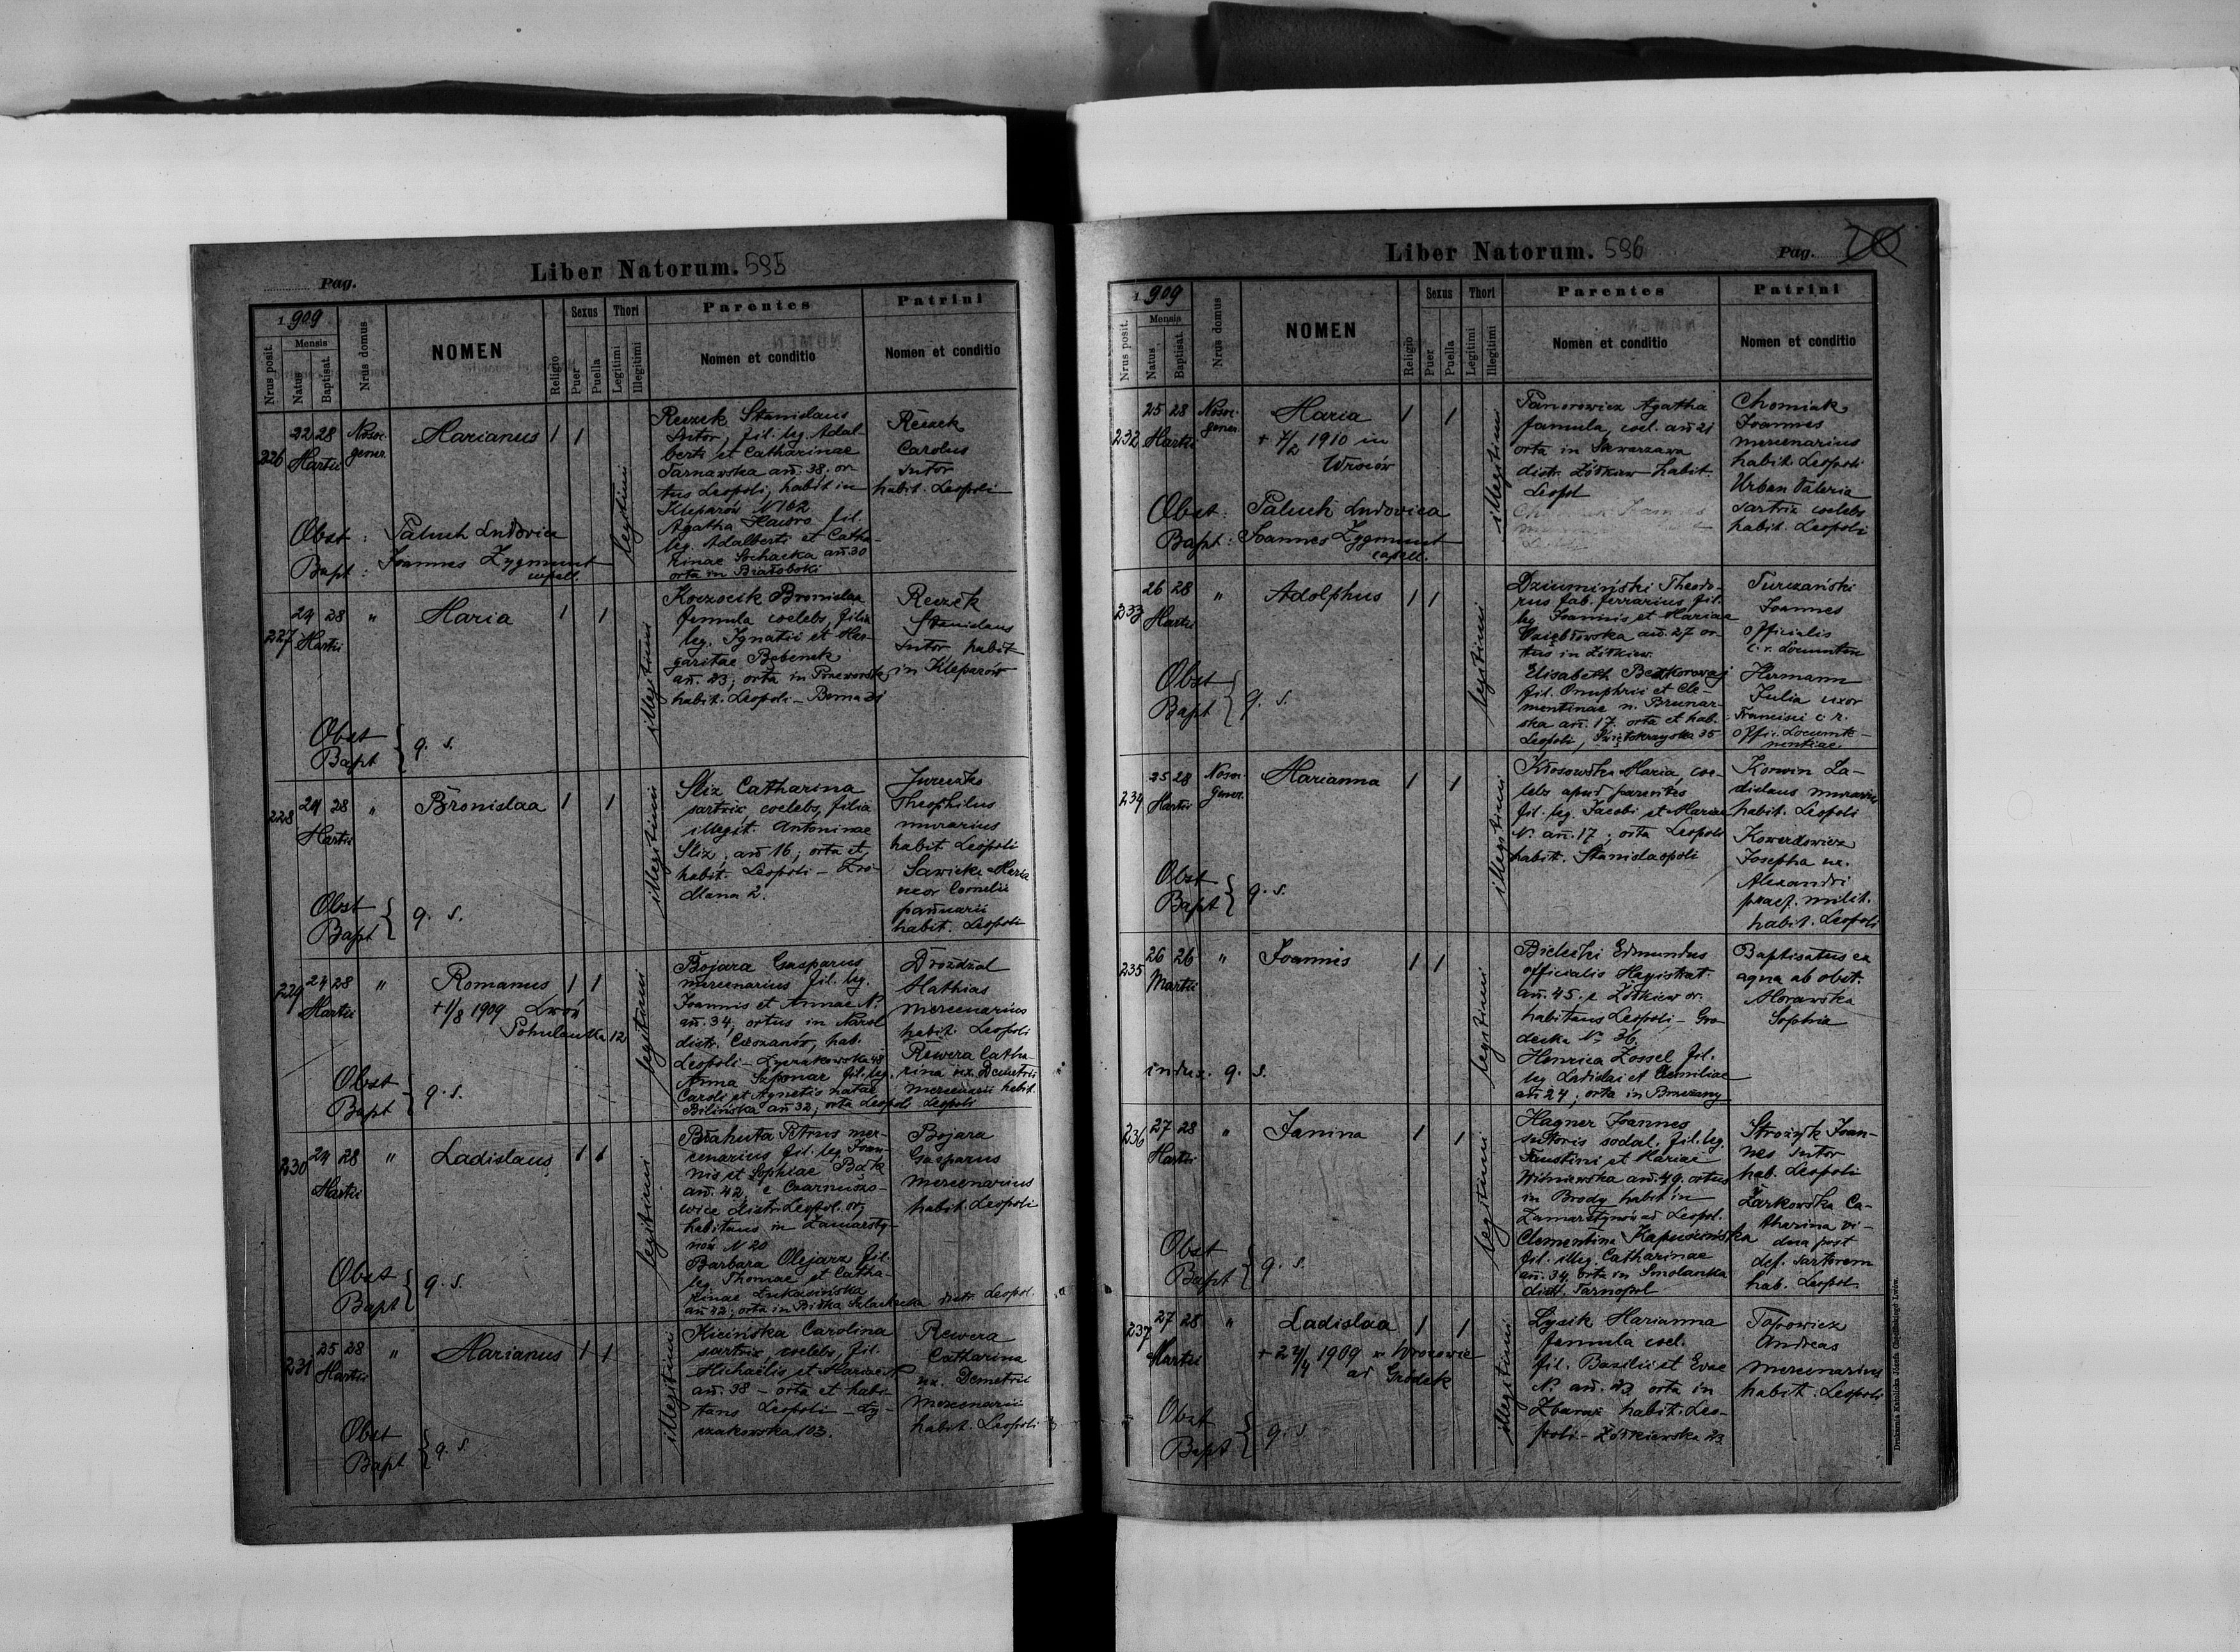 Pag.
Liber Natorum. 595
1909
Nrus posit.
Mensis
Natus
Baptisat.
Nrus domus
NOMEN
Religio
Sexus
Puer
Puella
Thori
Legitimi
Illegitimi
Parentes
Nomen et conditio
Patrini
Nomen et conditio
226
22 28
Martii
Nosoc.
gener.
Marianus 1 1
legitimi
Reczek Stanislaus
sutor, fil. leg. Adal-
berti et Catharinae
Tarnawska an. 38; or-
tus Leopoli, habit in
Kleparów N 162
Agatha Hawro fil.
leg. Adalberti et Catha-
rinae Sochacka an. 30
orta in
Reczek
Carolus
sutor
habit. Leopoli
Obst : Paluch Ludovica
Bapt : Joannes Zygmunt
capell.
227
24 28
Martii
"
Maria 1 1
illegitimi
Bronislaa
famula coelebs, filia
leg. Ignatii et Mar-
garitae Bębenek
an. 23; orta in
habit. Leopoli - Bema 21
Reczek
Stanislaus
sutor habit
in Kleparów
Obst
Bapt } q. s.
228
24 28
Martii
"
Bronislaa 1 1
illegitimi
Sliz Catharina
sartrix coelebs, filia
illegit. Antoninae
Sliz, an 16; orta et
habit. Leopoli - Zró-
dlana 2.
Jureczko
Theophilus
murarius
habit Leopoli
Sawicka Maria
uxor Cornelii
habit. Leopoli
Obst
Bapt } q. s.
229
24 28
Martii
"
Romanus 1 1
+ 1/8 1909 Lwów
Pohulanka 12
legitimi
Bojara Gasparus
mercenarius fil. leg.
Joannis et Annae N.
an. 34, ortus in Narol
distr. Cieszanów, hab.
Leopoli - Łyczakowska 48
Anna Szponar fil. leg.
Caroli et Agnetis natae
Bilińska an 32, orta Leopoli
Drożdżal
Mathias
mercenarius
habit. Leopoli
Rewera Catha-
rina ux. Demetrii
mercenarii habit.
Leopoli
Obst
Bapt } q. s.
230
24 28
Martii
"
Ladislaus 1 1
legitimi
Błahuta Petrus mer-
cenarius fil. leg. Joan-
nis et Sophiae Bąk
an. 42, e Czarnuszo-
wice distr. Leopol. or.
habitans in Zamarsty-
nów N 20
Barbara Olejarz fil.
leg. Thomae et Catha-
rinae Łukasińska
an 42; orta in Biłka Szlachecka distr. Leopol.
Bojara
Gasparus
mercenarius
habit. Leopoli
Obst
Bapt } q. s.
231
25 28
Martii
"
Marianus 1 1
illegitimi
Kicińska Carolina
sartrix coelebs, fil.
Michaelis et Mariae N
an. 38 - orta et habi-
tans Leopoli - Ły-
czakowska 103.
Rewera
Catharina
ux. Demetrii
mercenarii
habit. Leopoli
Obst
Bapt } q. s.
Liber Natorum. 596
Pag.
1909
Nrus posit.
Mensis
Natus
Baptisat.
Nrus domus
NOMEN
Religio
Sexus
Puer
Puella
Thori
Legitimi
Illegitimi
Parentes
Nomen et conditio
Patrini
Nomen et conditio
232
25 28
Martii
Nosoc.
gener.
Maria 1 1
+ 4/2 1910 in
Wroców
illegitimi
Panorowicz Agatha
famula, coel. an 21
orta in Skwarzawa
distr. Żółkiew habit.
Leopol
Chomiak
Joannes
mercenarius
habit. Leopoli
Urban Valeria
sartrix coelebs
habit. Leopoli
Obst : Paluch Ludovica
Bapt : Joannes Zygmunt
capell.
233
26 28
Martii
"
Adolphus 1 1
legitimi
Dziumiński Theodo-
rus fab. ferrarius fil.
leg Joannis et Mariae
an. 27 or-
tus in Żółkiew.
Elisabeth
fil. Onuphrii et Cle-
mentinae n.
an. 17. orta et hab.
Leopoli, Świętokrzyska 35
Turczański
Joannes
Officialis
c. r.
Hermann
Julia uxor
Francisci c. r.
Obst
Bapt } q. s.
234
25 28
Martii
Nosoc.
gener.
Marianna 1 1
illegitimi
Kłosowska Maria, coe-
lebs apud parentes
fil. leg. Jacobi et Mariae
N. an. 17; orta Leopoli
habit. Stanislaopoli
Korwin La-
dislaus murarius
habit. Leopoli
Kowerdowicz
Josepha ux.
Alexandri
praef. milit.
habit. Leopoli
Obst
Bapt } q. s.
235
26 26
Martii
"
Joannis 1 1
legitimi
Bielecki Edmundus
officialis Magistrat.
an. 45. e Żółkiew or.
habitans Leopoli - Gro-
decka N. 36.
Henrica Zossel fil.
leg Ladislai et Aemiliae
an 24; orta in Brzeżany
Baptisatus ex
aqua ab obst.
Morawska
Sophia
indux. q. s.
236
27 28
Martii
"
Janina 1 1
legitimi
Hagner Joannes
sutoris sodal. fil. leg.
Faustini et Mariae
Wiśniewska an. 49. ortus
in Brody habit in
Zamarstynów ad Leopol.
Clementina Kapuścińska
fil. illeg. Catharinae
an. 34, orta in Smolanka
distr. Tarnopol
Strożyk Joan-
nes sutor
hab. Leopoli
Żarkowska Ca-
tharina vi-
dua post
def. sartorem
hab. Leopol.
Obst
Bapt } q. s.
237
27 28
Martii
"
Ladislaa 1 1
+ 24/4 1909 w Wrocowie
ad Gródek
illegitimi
Łysik Marianna
famula coel.
fil. Basilii et Evae
N. an. 23 orta in
Zbaraż habit. Leo-
poli - Żółkiewska 23
Popowicz
Andreas
mercenarius
habit. Leopoli
Obst
Bapt } q. s.
Drukarnia Katolicka Józefa Chęcińskiego Lwów.